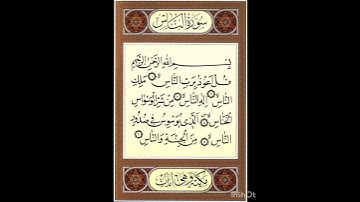 سورة الناس
بسم الله الرحمن الرحيم
قل أعوذ برب الناس ۝ ملك
الناس ۝ إله الناس ۝ من شر الوسواس
الخناس ۝ الذي يوسوس في صدور
الناس ۝ من الجنة والناس ۝
InShOt